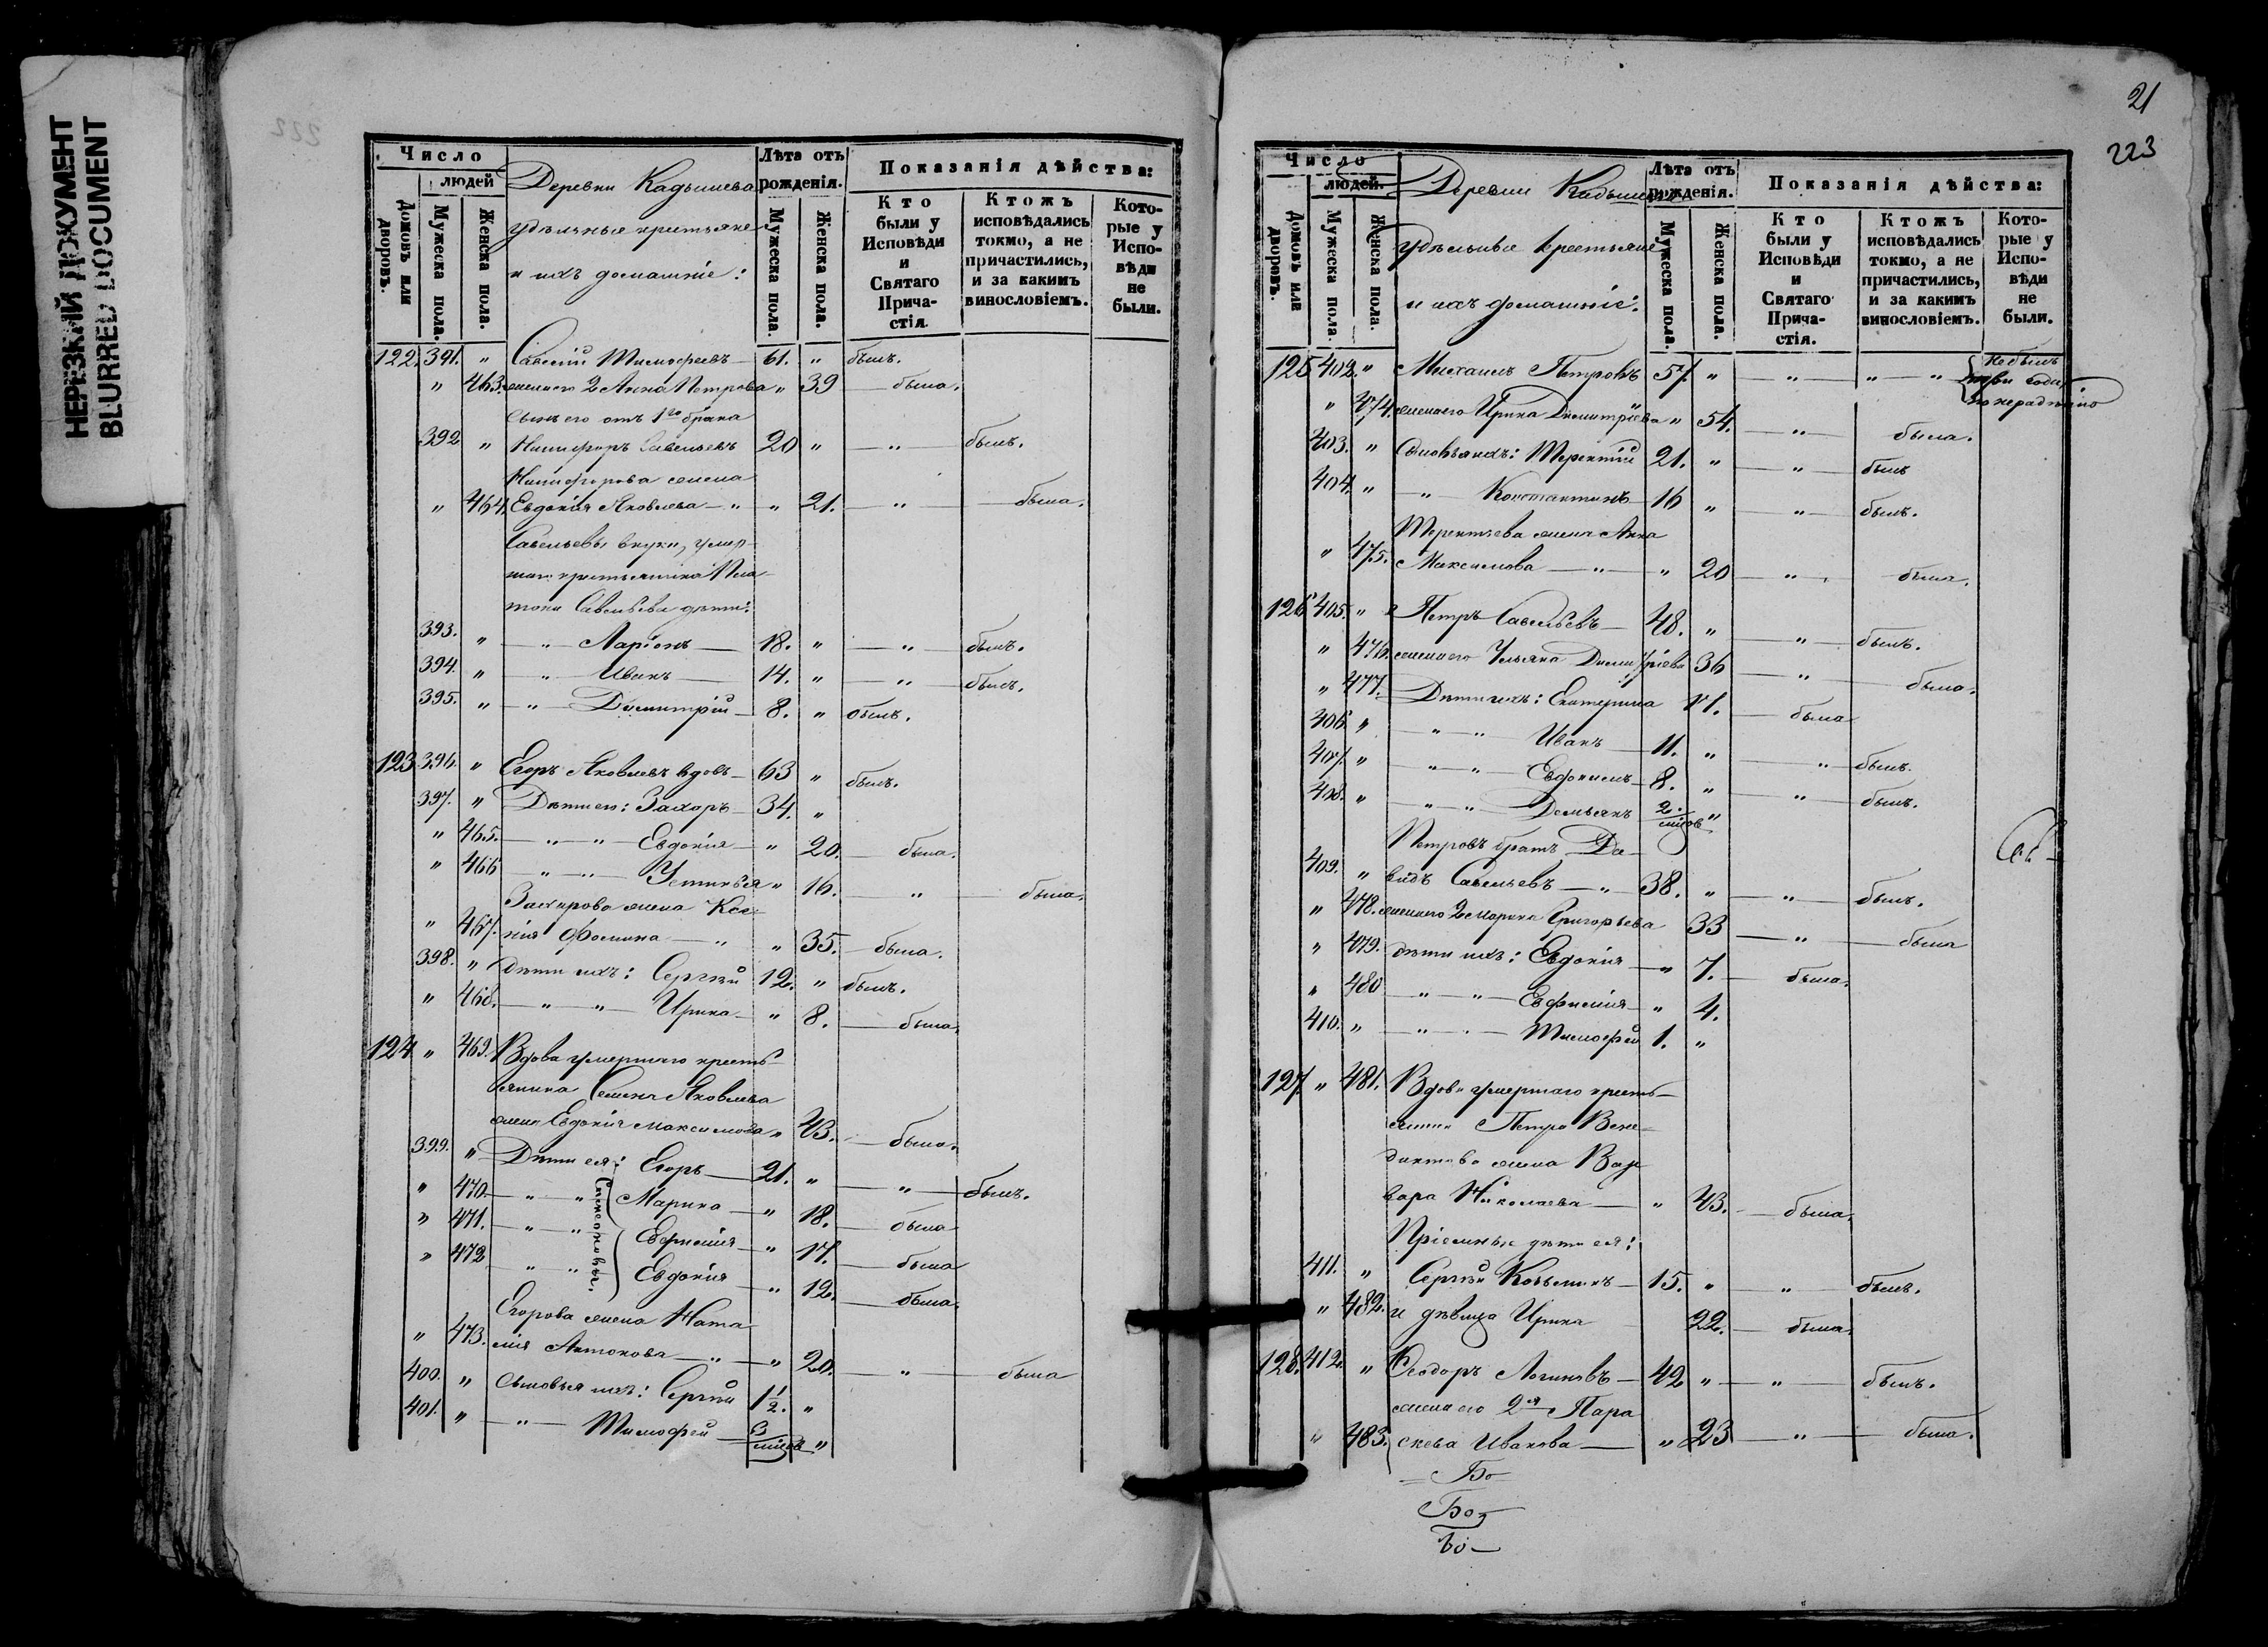 НЕРЕЗКИЙ ДОКУМЕНТ
BLURRED DOCUMENT
Число
людей
Домовъ или дворовъ.
Мужеска пола.
Женска пола.
Деревни Кадышева
удѣльные крестьяне
и ихъ домашніе:
Лѣта отъ рожденія.
Мужеска пола.
Женска пола.
Показанія дѣйства:
Кто были у Исповѣди и Святаго Прича-стія.
Ктожъ исповѣдались токмо, а не причастились, и за какимъ винословіемъ.
Кото-рые у Испо-вѣди не были.
122. 391. " Савелій Тимофеевъ 61. " былъ.
" 463. жена его 2 Анна Петрова " 39 была.
сынъ его отъ 1го брака
392 " Никифоръ Савельевъ 20 " " былъ.
Никифорова жена
" 464. Евдокія Яковлева " " 21. " была.
Савельевы внуки, умер-
шаго крестьянина Пла-
тона Савельева дѣти:
393. " " Ларіонъ 18. " " былъ.
394. " " Иванъ 14. " " былъ.
395. " " Димитрій 8. " былъ.
123 396. " Егоръ Яковлевъ вдовъ 63 " былъ.
397. " Дѣти его: Захаръ 34. "
" 465. " " Евдокія " 20. была.
" 466 " " Устинья " 16. " была.
Захарова жена Ксе-
" 467. нія Фомина " " 35. была.
398. " дѣти ихъ: Сергѣй 12. " былъ.
" 468. " " Ирина " 8. была.
124 " 469. Вдова умершаго кресть-
янина Семена Яковлева
жена Евдокія Максимова " 43. была.
399. " Дѣти ея: Егоръ 21. " " былъ.
" 470. " " Марина " 18. была
" 471. " " Евфимія " 17. была
" 472 " " Евдокія " 12. была.
Симеоновы.
Егорова жена Ната-
" 473. лія Антонова " " 20. " была
400. " сыновья ихъ: Сергѣй 1 1/2. "
401. " " Тимофей 3 мѣсяц. "
21
223
Число
людей.
Домовъ или дворовъ.
Мужеска пола.
Женска пола.
Деревни Кадышева
удѣльные крестьяне
и ихъ домашніе:
Лѣта отъ рожденія.
Мужеска пола.
Женска пола.
Показанія дѣйства:
Кто были у Исповѣди и Святаго Прича-стія.
Ктожъ исповѣдались токмо, а не причастились, и за какимъ винословіемъ.
Кото-рые у Испо-вѣди не были.
125 402. " Михаилъ Петровъ 57. " " " " не былъ
" 474. жена его Ирина Димитріева " 54. " была.
403. " Сыновья ихъ: Терентій 21. " " былъ
404. " " Константинъ 16 " " былъ.
Терентьева жена Анна
" 475. Максимова " " 20 " была.
126 405. " Петръ Савельевъ 48. " " былъ.
" 476. жена его Ульяна Димитріева 36 " была.
" 477. Дѣти ихъ: Екатерина была
406 " " " Иванъ 11. " " былъ.
407. " " " Евдокимъ 8. " " былъ.
408. " " " Демьянъ 2. мѣсяц. "
Петровъ братъ Да-
409. " видъ Савельевъ " 38. " " былъ.
" 478. жена его 2 Марина Григорьева 33 " была
" 479. дѣти ихъ: Евдокія " 7. была.
" 480 " " Евфимія " 4.
410. " " " Тимофей 1. "
127. " 481. Вдова умершаго кресть-
янина Петра Вене-
диктова жена Вар-
вара Николаева " 43. была.
Пріемные дѣти ея:
411. " Сергѣй Козьминъ 15. " " былъ.
" 482. и дѣвица Ирина 22. была.
128. 412. " Ѳеодоръ Логиновъ 42 " " былъ.
жена его 2я Пара-
" 483. скева Иванова " 23 " была.
Бо
Бо
Бо